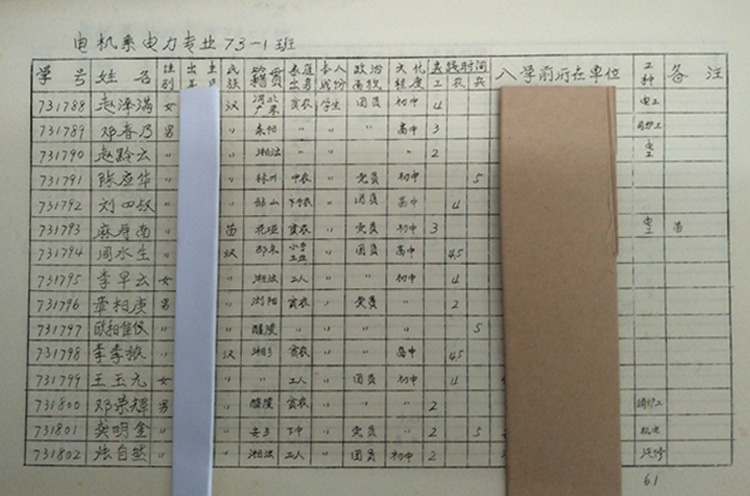 电机系电力专业73-1班
学号 姓名 性别 出生 民族 籍贯 家庭出身 本人成份 政治面貌 文化程度 实践时间 工 农 兵 入学前所在单位 工种 备注
731788 赵泽满 女 汉 河北 贫农 学生 团员 初中 4 电工
731789 邓春乃 男 〃 东阳 〃 〃 〃 高中 3 锅炉工
731790 赵黔云 〃 〃 湘潭 〃 〃 〃 〃 2 电工
731791 陈应华 〃 〃 中农 〃 党员 初中 5
731792 刘四 〃 〃 下中农 〃 团员 高中 4
731793 麻 南 〃 苗 花垣 贫农 〃 党员 初中 3 电工 苗
731794 周水生 〃 汉 邵东 〃 团员 高中 4.5
731795 李早云 女 〃 湘潭 工人 〃 〃 初中 4
731796 章柏庚 男 〃 浏阳 贫农 〃 党员 〃 2
731797 欧阳 〃 〃 醴陵 〃 〃 〃 〃 5
731798 李 〃 汉 湘乡 贫农 〃 〃 高中 4.5
731799 王玉元 女 〃 〃 工人 〃 团员 初中 4
731800 邓荣辉 男 〃 醴陵 贫农 〃 〃 〃 2 锅炉工
731801 龚明金 〃 〃 安乡 下中 〃 党员 〃 2 5
731802 张自然 〃 〃 湘潭 工人 〃 团员 初中 2 汽修
61